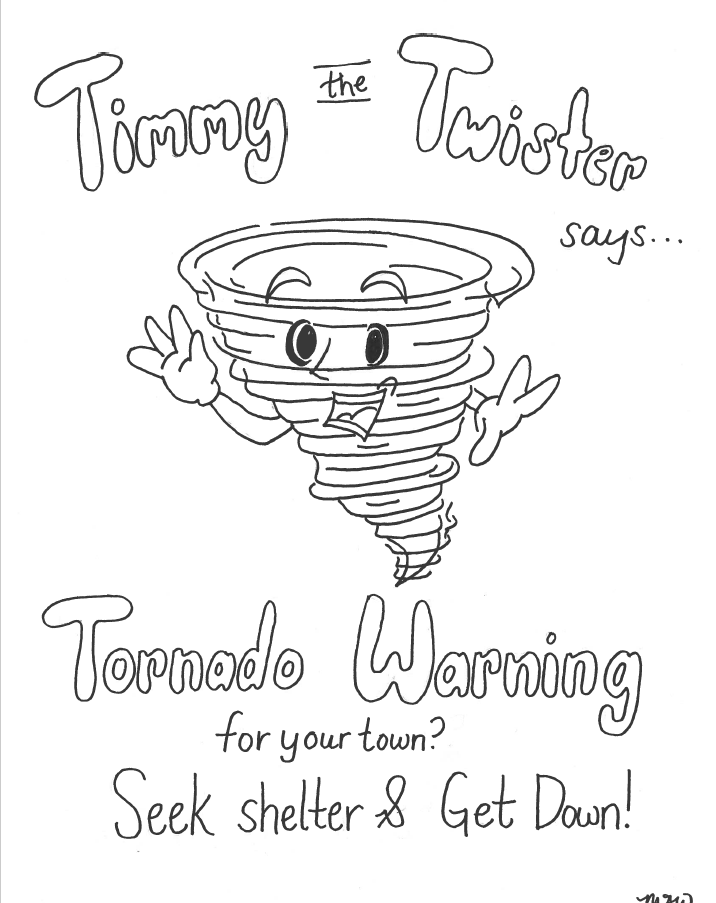 Timmy the Twister
says...
Tornado Warning
for your town?
Seek shelter & Get Down!